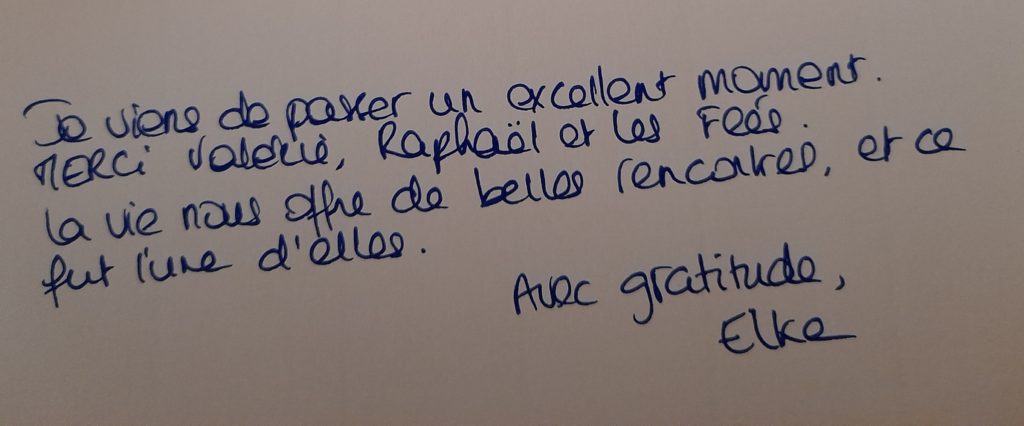 Je viens de passer un excellent moment.
MERCI Valérie, Raphaël et les Fées.
la vie nous offre de belles rencontres, et ce
fut l'une d'elles.
Avec gratitude,
Elke